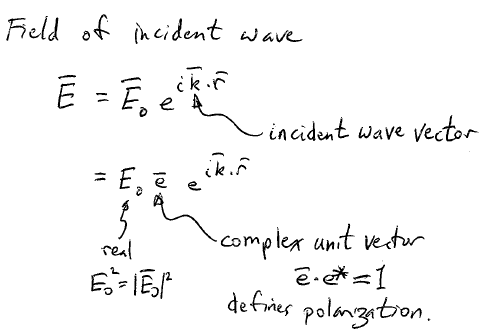 Field of incident wave
E̅ = E̅₀ e^{i k̅·r̅}
incident wave vector
= E₀ e̅ e^{i k̅·r̅}
real
complex unit vector
E₀² = |E̅₀|²
e̅·e̅* = 1
defines polarization.